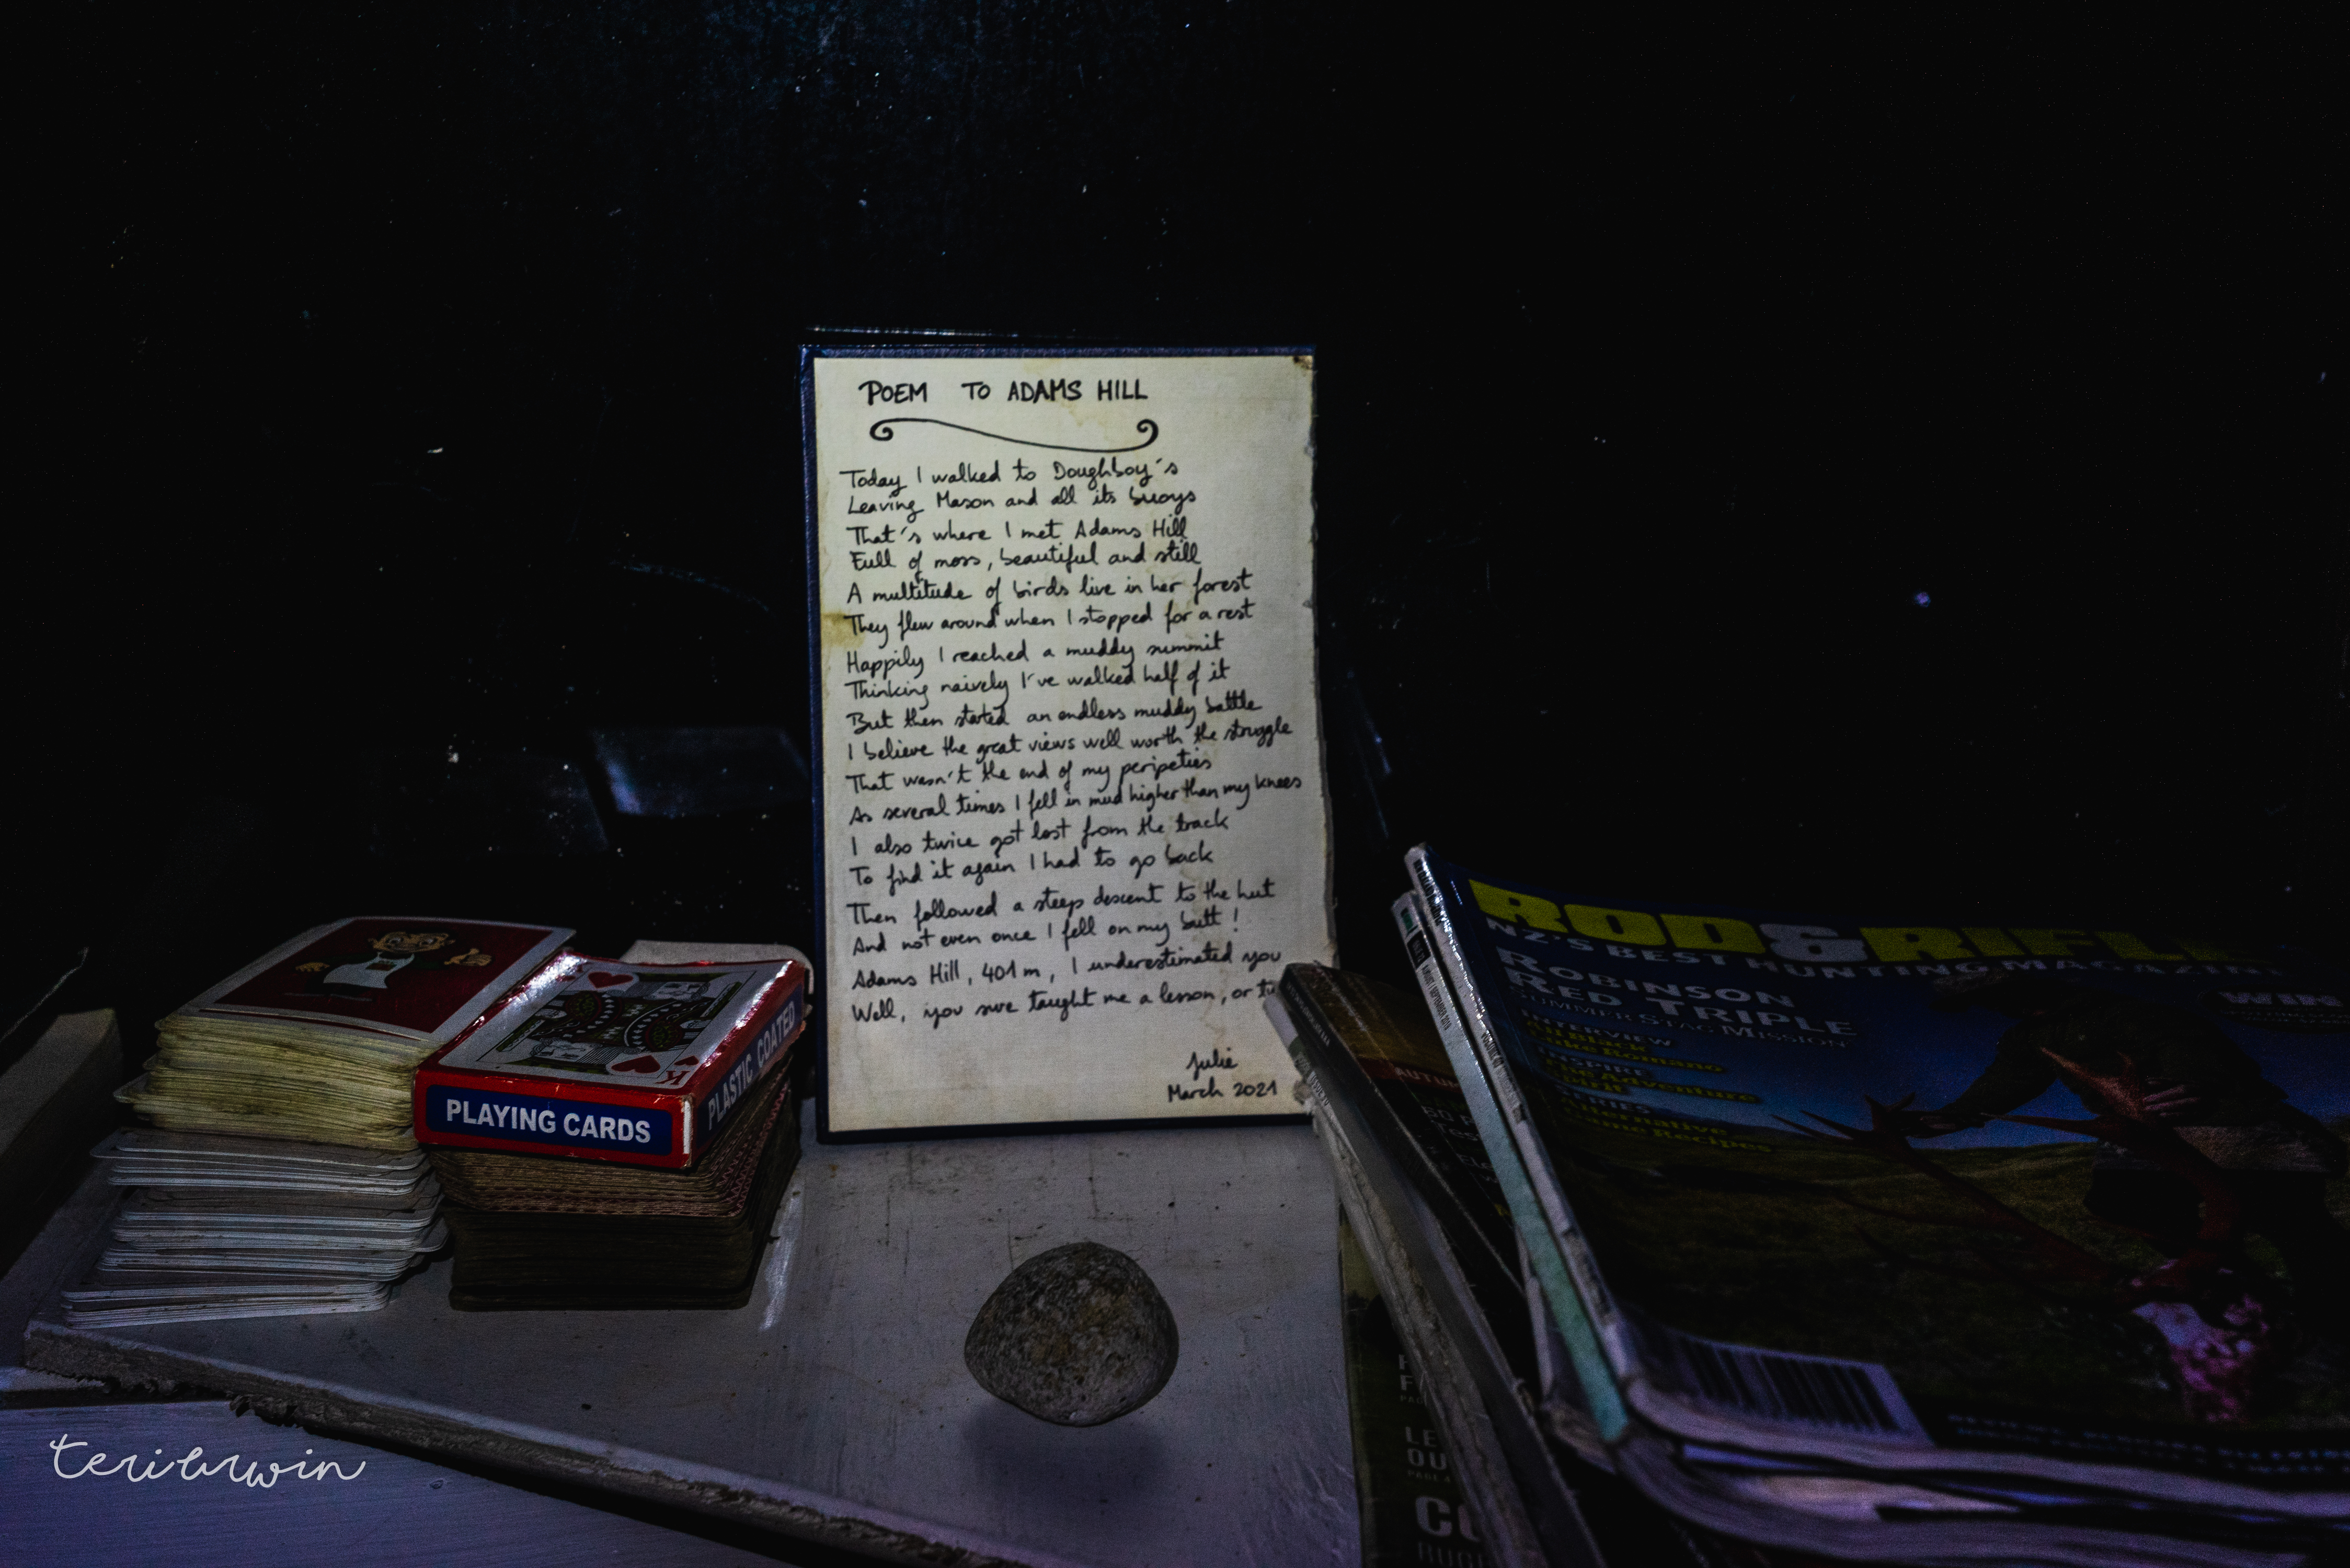 POEM TO ADAMS HILL
Today I walked to Doughboy's
Leaving Mason and all its buoys
That's where I met Adams Hill
Full of moss, beautiful and still
A multitude of birds live in her forest
They flew around when I stopped for a rest
Happily I reached a muddy summit
Thinking naively I've walked half of it
But then started an endless muddy battle
I believe the great views well worth the struggle
That wasn't the end of my peripeties
As several times I fell in mud higher than my knees
I also twice got lost from the track
To find it again I had to go back
Then followed a steep descent to the hut
And not even once I fell on my butt!
Adams Hill, 401m, I underestimated you
Well, you sure taught me a lesson, or
Julie
March 2021
K
PLAYING CARDS
PLASTIC COATED
ROD&RIFLE
NZ'S BEST HUNTING MAGAZINE
ROBINSON
RED TRIPLE
SUMMER STAG MISSION
INTERVIEW
INSPIRE
The Adventure
Spirit
SERIES
Alternative
Game Recipes
WIN
teribrwin